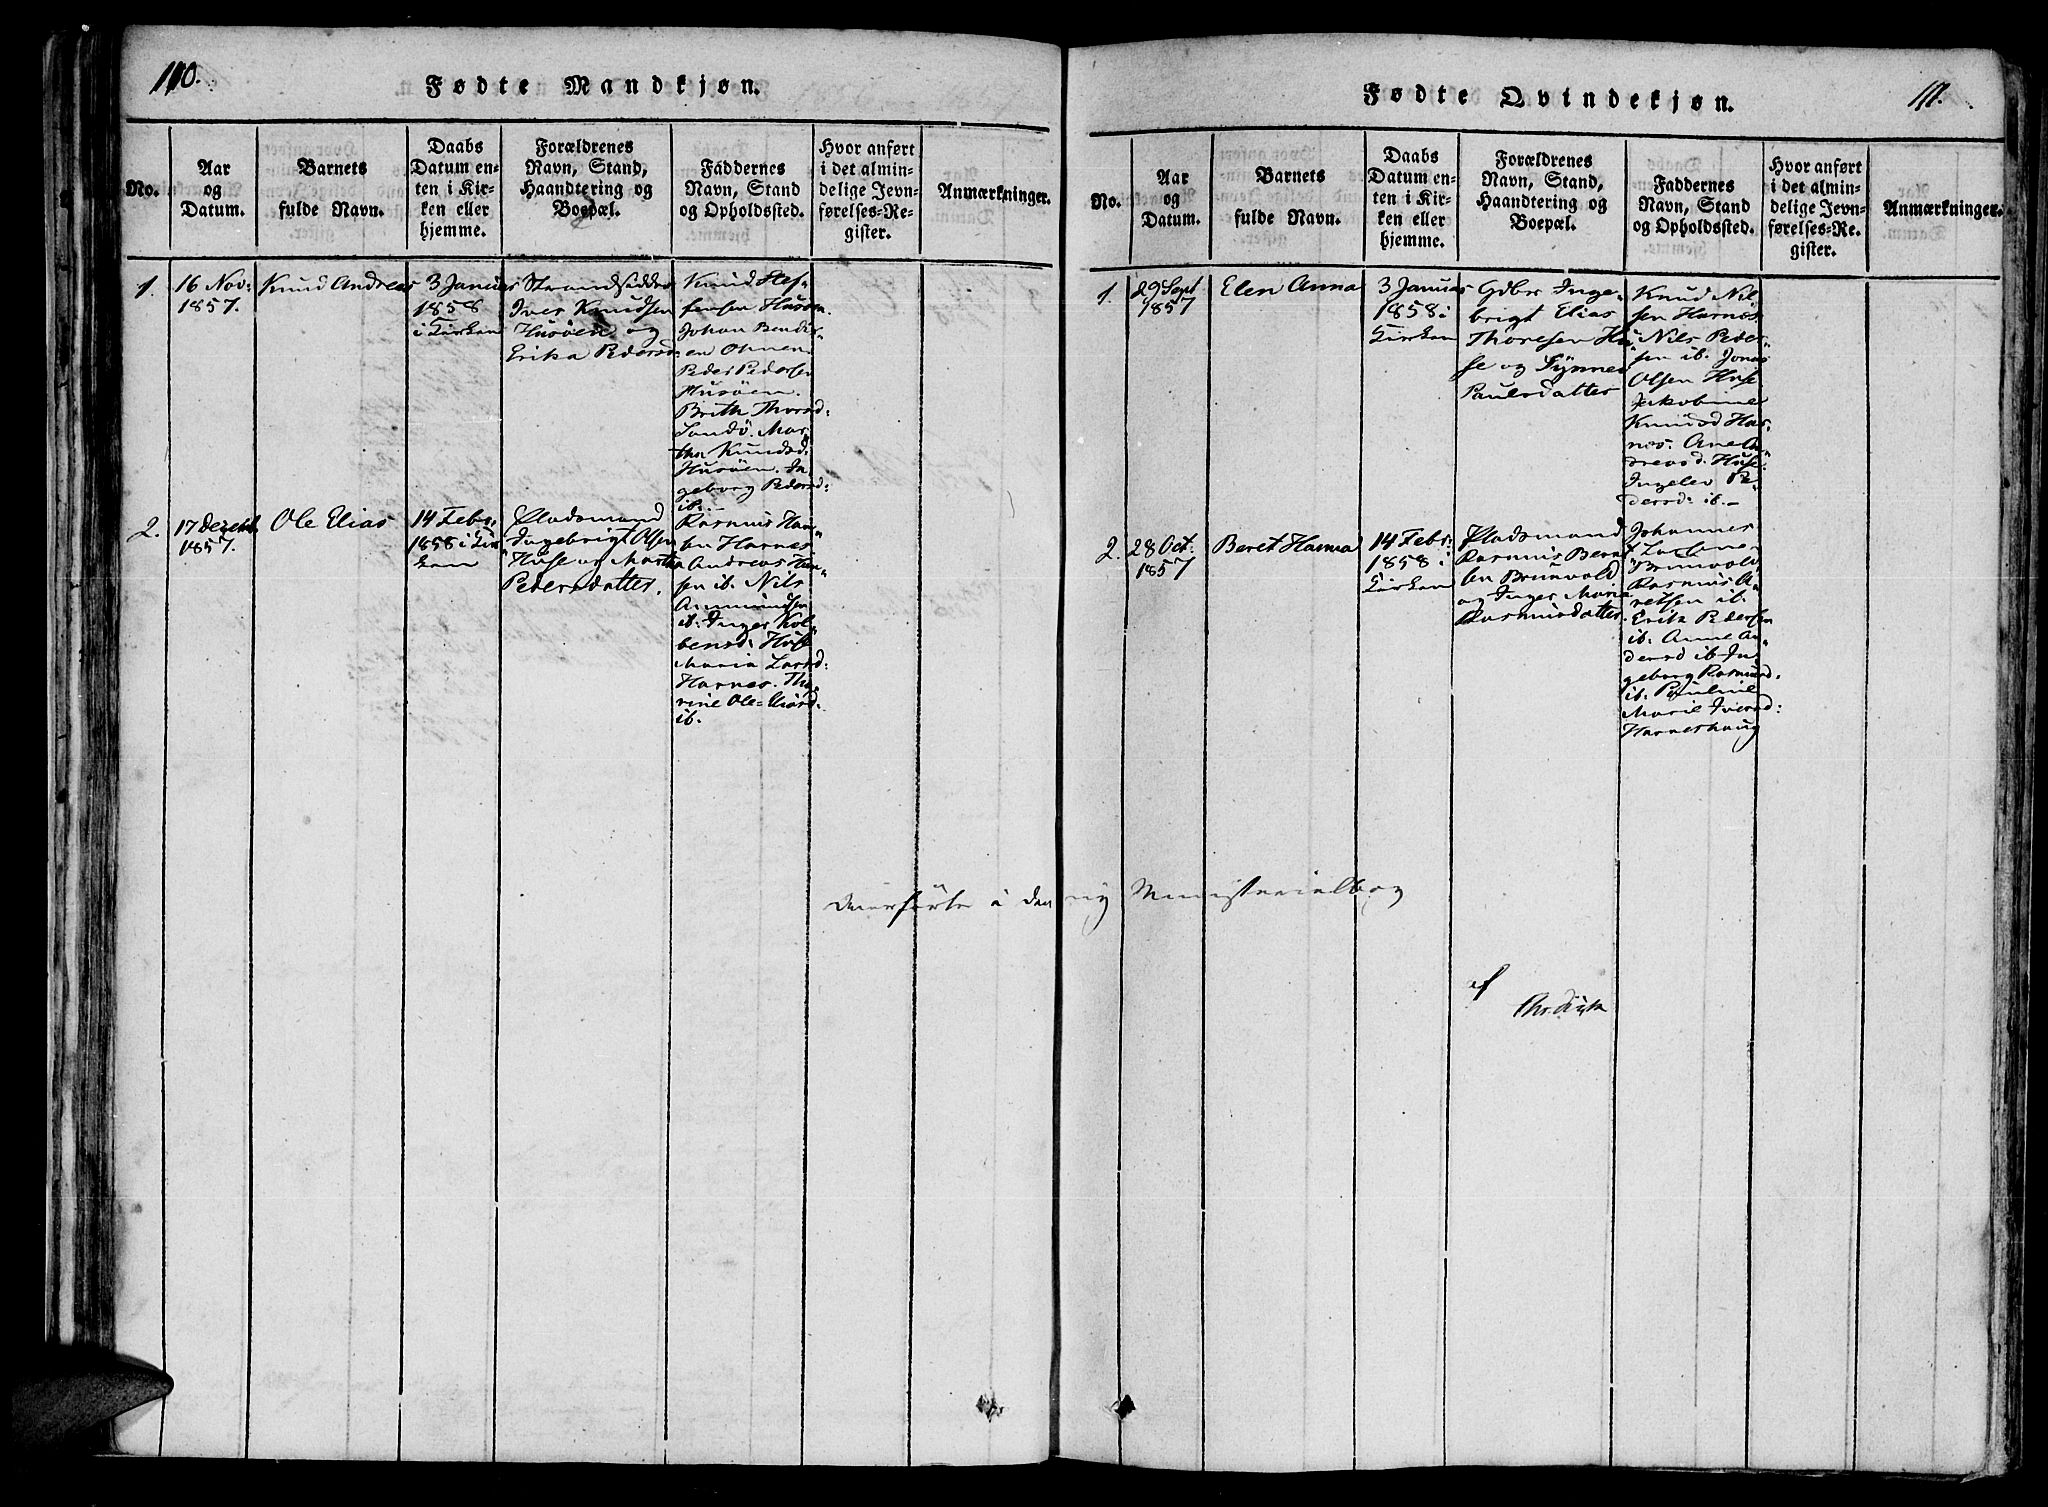 110.
Fødte Mandkjøn.
No.
Aar
og
Datum.
Barnets
fulde Navn.
Daabs
Datum en-
ten i Kir-
ken eller
hjemme.
Forældrenes
Navn, Stand,
Haandtering og
Boepæl.
Faddernes
Navn, Stand
og Opholdssted.
Hvor anført
i det almin-
delige Jevn-
førelses-Re-
gister.
Anmærkninger.
1.
16 Nov:
1857.
Knud Andreas
3 Januar
1858
i Kirken
Strandsidder
Iver Knudsen
Husøen og
Erika Pedersd.
Knud Stef-
fensen Husøen.
Johan Bendix-
en
Peder Pedersen
Husøen.
Brith Thorsd:
Sandø. Mar-
tha Knudsd.
Husøen. In
geborg Pedersd:
ib.
2.
17 Dezemb
1857.
Ole Elias
14 Febr.
1858 i Kir
ken
Pladsmand
Ingebrigt Olsen
Huse og Martha
Pedersdatter.
Rasmus Han-
sen Harnes
Andreas Han-
sen ib. Nils
Ammundsen
ib: Inger Kol-
bensd: Huse
Maria Larsd:
Harnes. Tho-
rine Ole-Eliasd:
ib.
111.
Fødte Qvindekjøn.
No.
Aar
og
Datum.
Barnets
fulde Navn.
Daabs
Datum en-
ten i Kir-
ken eller
hjemme.
Forældrenes
Navn, Stand,
Haandtering og
Boepæl.
Faddernes
Navn, Stand
og Opholdssted.
Hvor anført
i det almin-
delige Jevn-
førelses-Re-
gister.
Anmærkninger.
1.
29 Sept
1857
Elen Anna
3 Januar
1858 i
Kirken
Gdbr Inge-
brigt Elias
Thoresen Hu-
se og Synnev
Paulsdatter
Knud Nil
sen Harnes
Nils Peder-
sen ib. Jonas
Olsen Huse
Jakobine
Knudsd Har-
nes. Ane An-
dreasd. Huse.
Ingelev Pe-
dersd: ib. -
2.
28 Oct:
1857
Beret Hanna
14 Febr:
1858 i
Kirken
Pladsmand
Rasmus Bernt
sen Brunvold
og Inger Maria
Rasmusdatter.
Johannes
Larsen
Brunvold
Rasmus A-
retsen ib.
Erik Pedersen
ib. Anne An-
dersd ib. In
geborg Rasmusd.
ib. Pauline
Marie Iversd:
Harneshaug
Overførte i den ny Ministerialbog
af